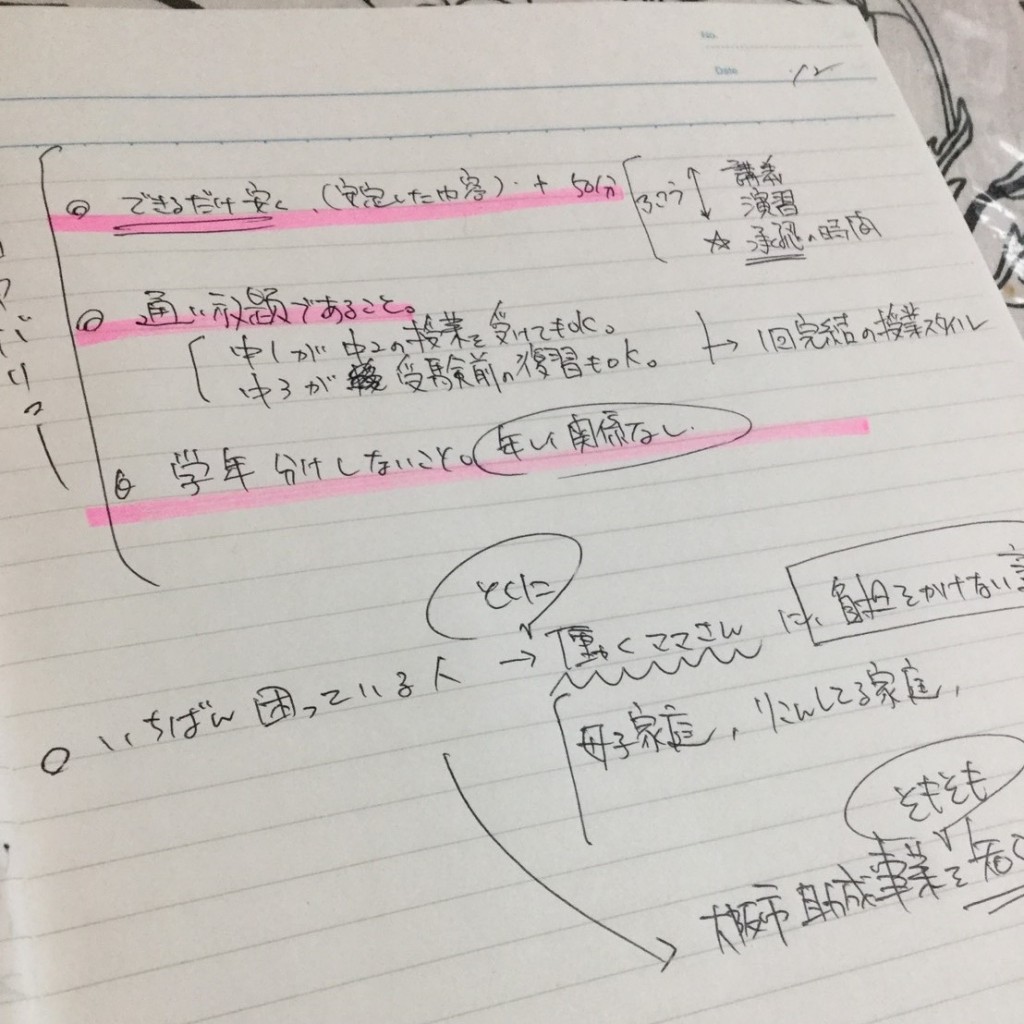 No.
Date
できるだけ安く、(安定した内容)・+ 50分
講義
演習
☆ 承認の時間
通い放題であること。
中1が中2の授業を受けてもOK。
中3が 受験前の復習もOK。
→ 1回完結の授業スタイル
学年分けしないこと。年しく関係なし。
とくに
いちばん困っている人 → 働くママさん に、負担をかけない
母子家庭，りこんしてる家庭，
そもそも
大阪市助成事業を知